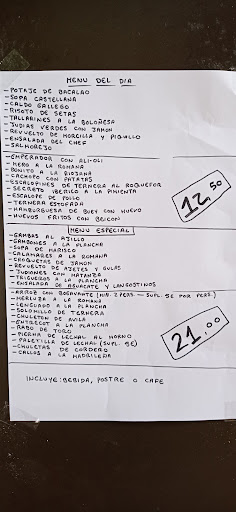 MENU DEL DIA
-POTAJE DE BACALAO
-SOPA CASTELLANA
-CALDO GALLEGO
-RISOTO DE SETAS
-TALLARINES A LA BOLOÑESA
-JUDIAS VERDES CON JAMON
-REVUELTO DE MORCILLA Y PIQUILLO
-ENSALADA DEL CHEF
-SALMOREJO
-EMPERADOR CON ALI-OLI
-MERO A LA ROMANA
-BONITO A LA RIOJANA
-CACHOPO CON PATATAS
-ESCALOPINES DE TERNERA AL ROQUEFOR
-SECRETO IBERICO A LA PIMIENTA
-ESCALOPE DE POLLO
-TERNERA ESTOFADA
-HAMBURGUESA DE BUEY CON HUEVO
-HUEVOS FRITOS CON BEICON
12,50
MENU ESPECIAL
-GAMBAS AL AJILLO
-GAMBONES A LA PLANCHA
-SOPA DE MARISCO
-CALAMARES A LA ROMANA
-CROQUETAS DE JAMON
-REVUELTO DE AJETES Y GULAS
-JUDIONES CON MATANZA
-TRIGUEROS A LA PLANCHA
-ENSALADA DE AGUACATE Y LANGOSTINOS
-ARROZ CON BOGAVANTE (MIN. 2 PERS. SUPL. 5€ POR PERS.)
-MERLUZA A LA ROMANA
-LENGUADO A LA PLANCHA
-SOLOMILLO DE TERNERA
-CHULETON DE AVILA
-ENTRECOT A LA PLANCHA
-RABO DE TORO
-PIERNA DE LECHAL AL HORNO
-PALETILLA DE LECHAL (SUPL. 5€)
-CHULETAS DE CORDERO
-CALLOS A LA MADRILEÑA
21,00
INCLUYE:BEBIDA, POSTRE O CAFE